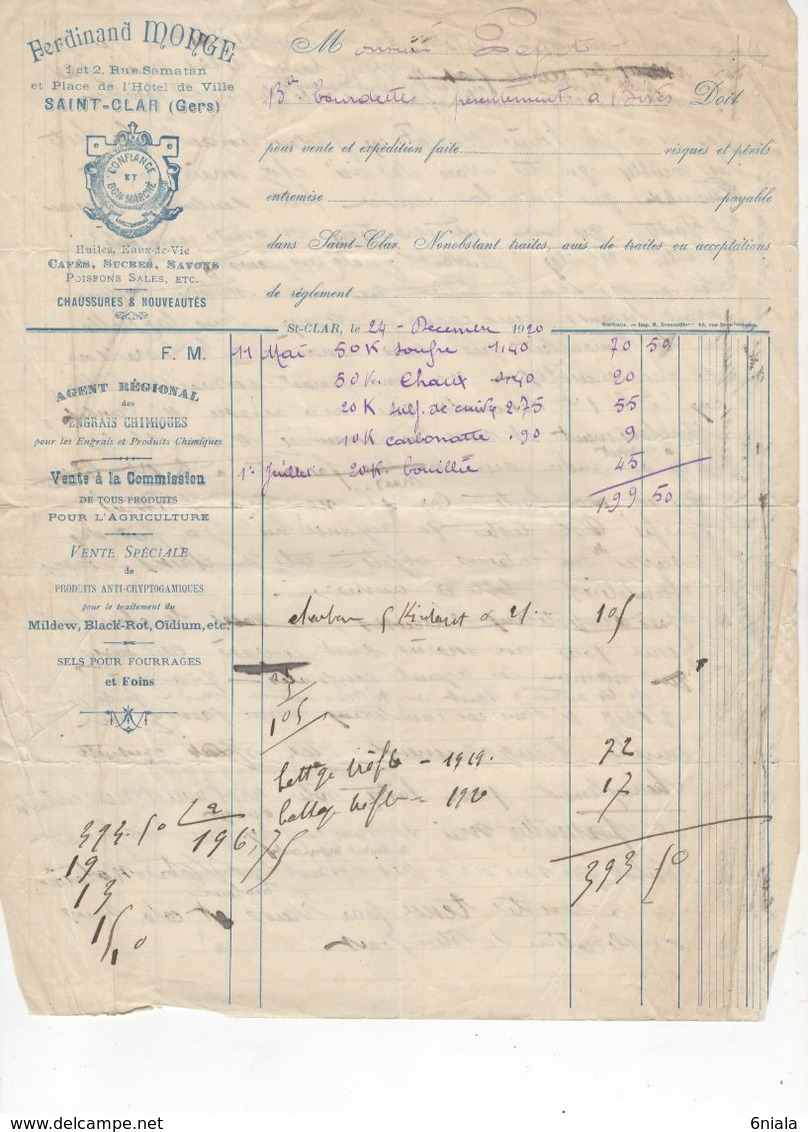 Ferdinand MONGE
1 et 2, Rue Samatan
et Place de l'Hôtel de Ville
SAINT-CLAR (Gers)
CONFIANCE
ET
BON MARCHÉ
Huiles, Eaux-de-Vie
CAFÉS, SUCRES, SAVONS
POISSONS SALÉS, ETC.
CHAUSSURES & NOUVEAUTÉS
Monsieur
Bourdettes, présentement à Bivès Doit
pour vente et expédition faite risques et périls
entremise payable
dans Saint-Clar. Nonobstant traites, avis de traites ou acceptations
de règlement
St-CLAR, le 24 - Decembre 1920
F. M. 11 Mai. 50 K soufre 1.40 70 50
50 K. Chaux 0.40 20
20 K sulf. de cuivre 2.75 55
10 K carbonatte .90 9
1er Juillet. 20 K. bouillie 45
199 50
AGENT RÉGIONAL
des
ENGRAIS CHIMIQUES
pour les Engrais et Produits Chimiques
Vente à la Commission
DE TOUS PRODUITS
POUR L'AGRICULTURE
VENTE SPÉCIALE
de
PRODUITS ANTI-CRYPTOGAMIQUES
pour le traitement du
Mildew, Black-Rot, Oïdium, etc.
SELS POUR FOURRAGES
et Foins
charbon 5 à 21 105
21
5
105
battage trèfle - 1919. 72
battage trèfle - 1920 17
393 50
393.50 2
19 196,75
13
15,0
6niala